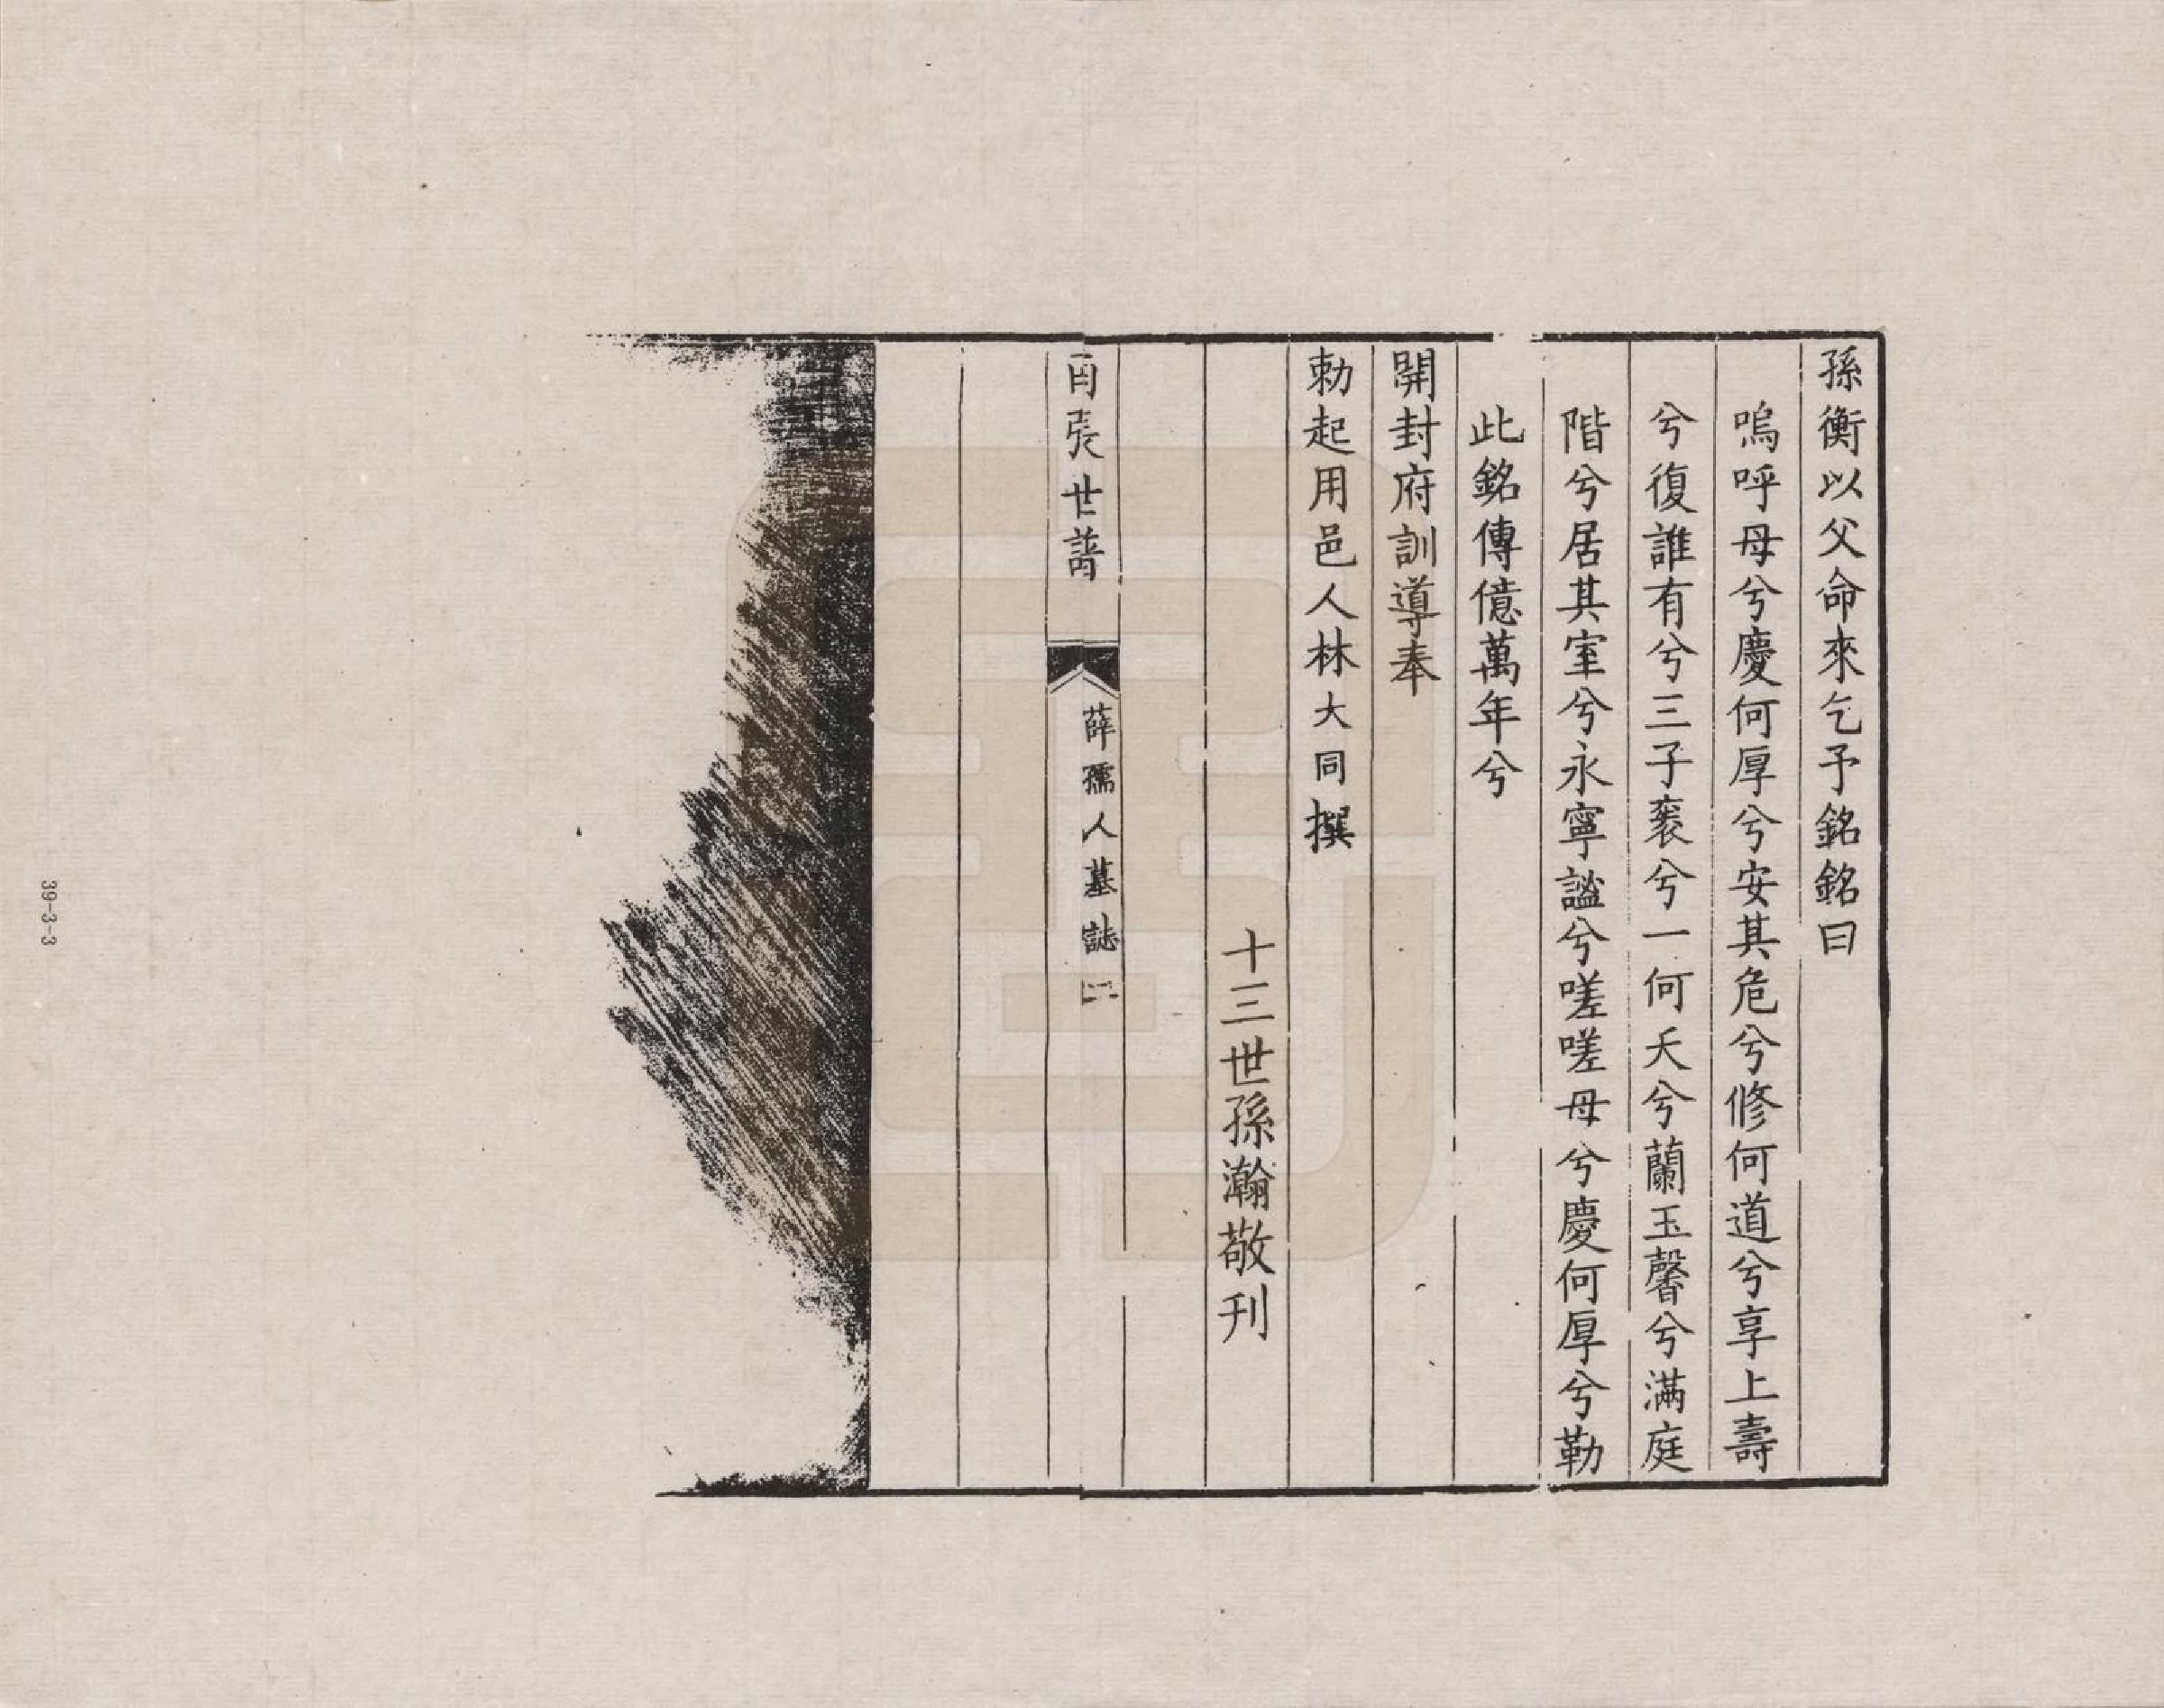 孫衡以父命來乞予銘銘曰
嗚呼母兮慶何厚兮安其危兮修何道兮享上壽
兮復誰有兮三子衮兮一何夭兮蘭玉馨兮滿庭
階兮居其室兮永寧謐兮嗟嗟母兮慶何厚兮勒
此銘傳億萬年兮
開封府訓導奉
勅起用邑人林大同撰
十三世孫瀚敬刊
張世譜
薛孺人墓誌 二
39-3-3